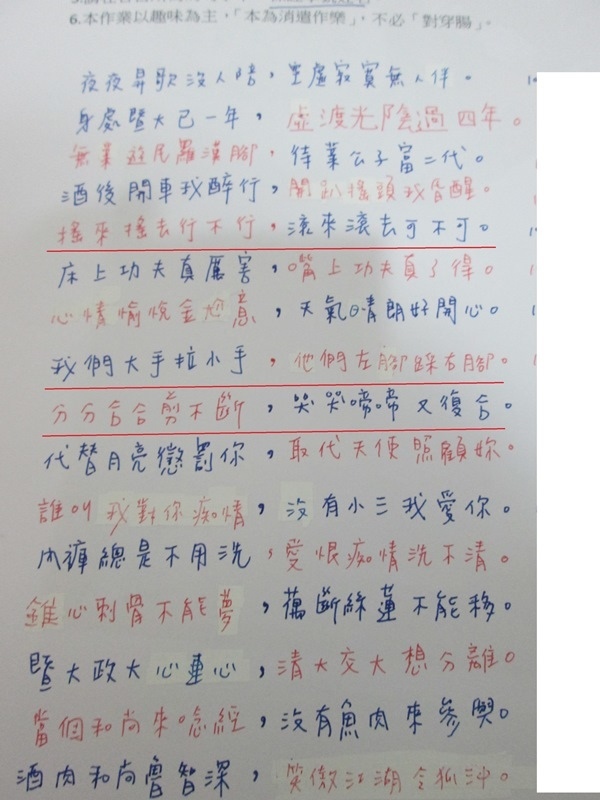 6.本作業以趣味為主，「本為消遣作樂」，不必「對穿腸」。
夜夜昇歌沒人陪，空虛寂寞無人伴。
身處暨大已一年，虛渡光陰過四年。
無業遊民羅漢腳，待業公子富二代。
酒後開車我醉行，開趴搖頭我皆醒。
搖來搖去行不行，滾來滾去可不可。
床上功夫真厲害，嘴上功夫真了得。
心情愉悅金尬意，天氣晴朗好開心。
我們大手拉小手，他們左腳踩右腳。
分分合合剪不斷，哭哭啼啼又復合。
代替月亮懲罰你，取代天使照顧妳。
誰叫我對你痴情，沒有小三我愛你。
內褲總是不用洗，愛恨痴情洗不清。
錐心刺骨不能夢，藕斷絲蓮不能移。
暨大政大心連心，清大交大想分離。
當個和尚來唸經，沒有魚肉來參與。
酒肉和尚魯智深，笑傲江湖令狐沖。